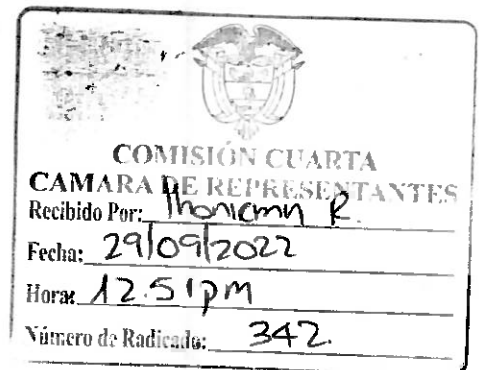 COMISIÓN CUARTA
CAMARA DE REPRESENTANTES
Recibido Por: R.
Fecha: 29/09/2022
Hora: 12.51pm
Número de Radicado: 342.